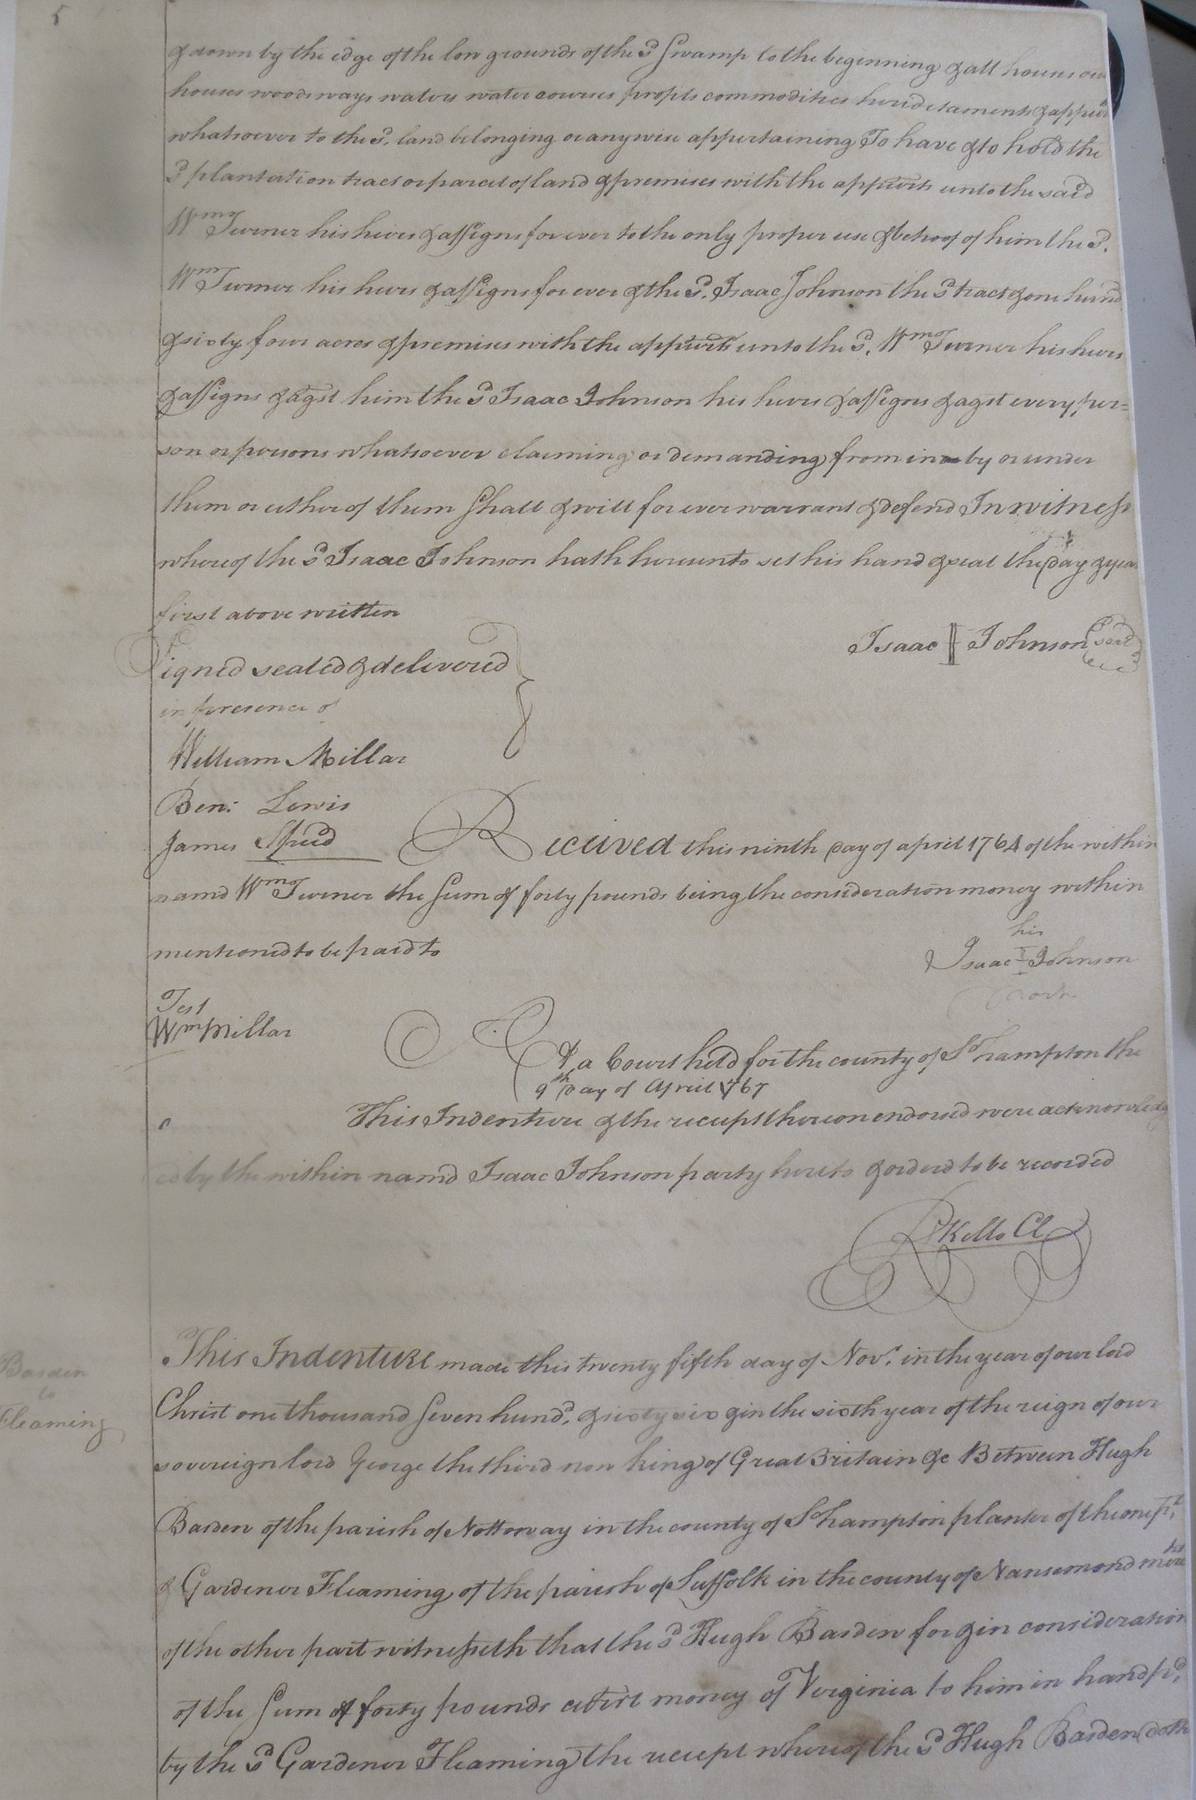 5
& down by the edge of the low grounds of the sd Swamp to the beginning & all houses out
houses woods ways waters water courses profits commodities heriditaments & appurts
whatsoever to the sd. land belonging or anywise appertaining To have & to hold the
sd plantation tract or parcel of land & premises with the appurts unto the said
Wm Turner his heirs & assigns for ever to the only proper use & behoof of him the sd.
Wm Turner his heirs & assigns for ever & the sd. Isaac Johnson the sd tract & one hund
& sixty four acres & premises with the appurts unto the sd. Wm Turner his heirs
& assigns & agst him the sd Isaac Johnson his heirs & assigns & agst every per=
son or persons whatsoever claiming or demanding from in by or under
them or either of them Shall & will for ever warrant & defend In witness
whereof the sd Isaac Johnson hath hereunto set his hand & seal the day & year
first above written
Isaac I Johnson seal
Signed sealed & delivered
in presence of
William Millar
Ben: Lewis
James Speed
Received this ninth day of april 1764 of the within
namd Wm Turner the Sum of forty pounds being the consideration money within
mentioned to be paid to
his
Isaac I Johnson
mark
Test
Wm Millar
At a Court held for the county of So hampton the
9th day of April 1767
This Indenture & the receipt thereon endorsed were acknowledg
ed by the within namd Isaac Johnson party hereto & orderd to be recorded
R Kello Cl
Barden
to
Fleaming
This Indenture made this twenty fifth day of Novr. in the year of our lord
Christ one thousand Seven hundd. & sixty six & in the sixth year of the reign of our
sovereign lord George the third now king of Great Britain &c Between Hugh
Barden of the parish of Nottoway in the county of So hampton planter of the one pt.
& Gardener Fleaming of the parish of Suffolk in the county of Nansemond
of the other part witnesseth that the sd Hugh Barden for & in consideration
of the Sum of forty pounds current money of Virginia to him in hand pd.
by the sd Gardener Fleaming the receipt whereof the sd Hugh Barden doth